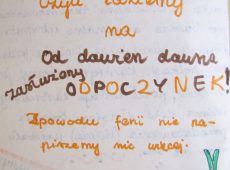 na
Od dawien dawna
zasłużony
ODPOCZYNEK!
Zpowodu ferii nie na-
piszemy nic więcej.